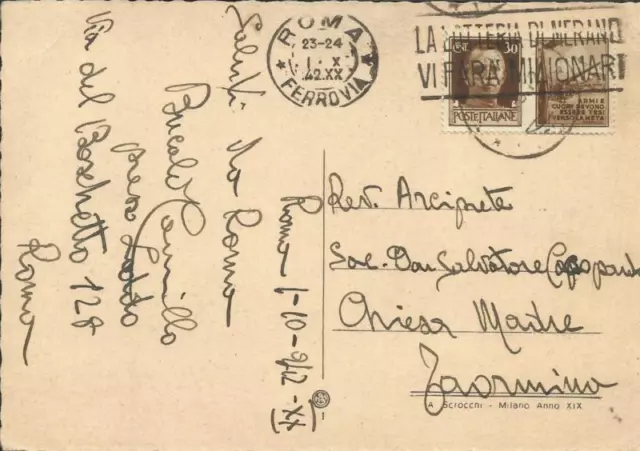 ROMA
23-24
1.X
42.XX
FERROVIA
LA LOTTERIA DI MERANO
VI FARÀ MILIONARI
CENT. 30
POSTE ITALIANE
ARMI E
CUORI DEVONO
ESSERE TESI
VERSO LA META
Saluti da Roma
Camillo
presso
Via del Boschetto 128
Roma
Roma 1-10-942-XX
Rev. Arciprete
Sac. Don Salvatore
Chiesa Madre
Taormina
A. Scrocchi - Milano Anno XIX
1